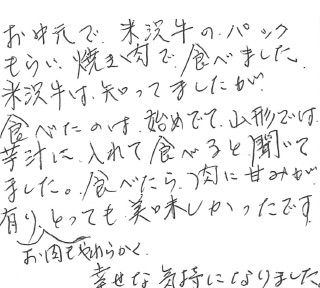 お中元で、米沢牛の、パック
もらい、焼き肉で、食べました、
米沢牛は、知ってましたが、
食べたのは、始めでて、山形では、
芋汁に、入れて食べると、聞いて
ました。食べたら、肉に甘みが、
有り、とっても、美味しかったです
お肉もやわらかく、
幸せな気持になりました。